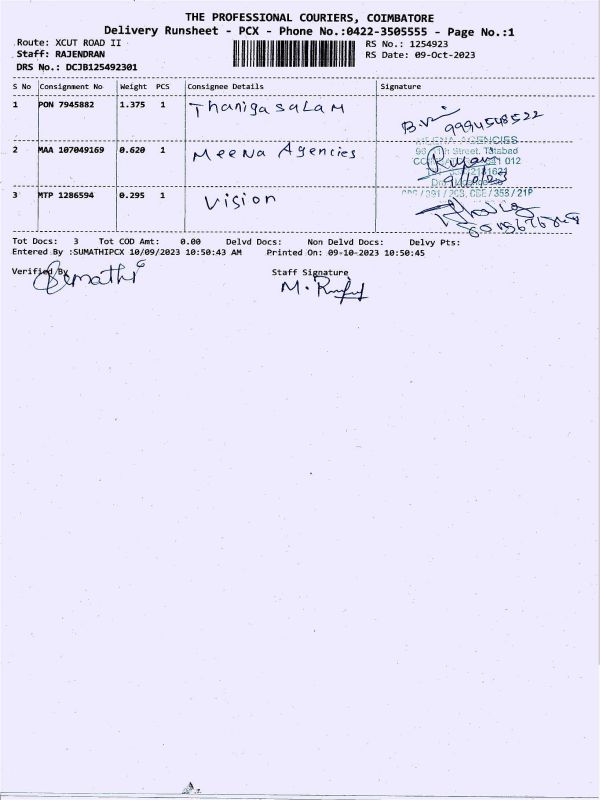 THE PROFESSIONAL COURIERS, COIMBATORE
Delivery Runsheet - PCX - Phone No.:0422-3505555 - Page No.:1
Route: XCUT ROAD II RS No.: 1254923
Staff: RAJENDRAN RS Date: 09-Oct-2023
DRS No.: DCJB125492301
S No Consignment No Weight PCS Consignee Details Signature
1 PON 7945882 1.375 1 Thanigasalam
9994548522
2 MAA 107049169 0.620 1 Meena Agencies
AGENCIES
Street, Tatabad
012
9/10/23
3 MTP 1286594 0.295 1 Vision
Tot Docs: 3 Tot COD Amt: 0.00 Delvd Docs: Non Delvd Docs: Delvy Pts:
Entered By :SUMATHIPCX 10/09/2023 10:50:43 AM Printed On: 09-10-2023 10:50:45
Verified By Staff Signature
Sumathi